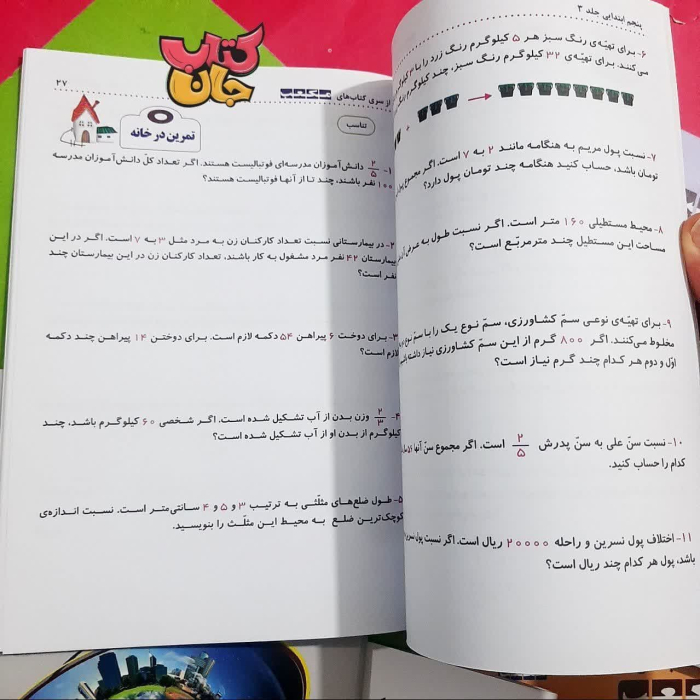 کتاب جان
۲۷
از سری کتاب‌های
تمرین در خانه
تناسب
۱- ۲/۵ دانش‌آموزان مدرسه‌ای فوتبالیست هستند. اگر تعداد کلّ دانش‌آموزان مدرسه
۱۰۰ نفر باشند، چند تا از آنها فوتبالیست هستند؟
۲- در بیمارستانی نسبت تعداد کارکنان زن به مرد مثل ۳ به ۷ است. اگر در این
بیمارستان ۴۲ نفر مرد مشغول به کار باشند، تعداد کارکنان زن در این بیمارستان چند
نفر است؟
۳- برای دوخت ۶ پیراهن ۵۴ دکمه لازم است. برای دوختن ۱۴ پیراهن چند دکمه
لازم است؟
۴- ۲/۳ وزن بدن از آب تشکیل شده است. اگر شخصی ۶۰ کیلوگرم باشد، چند
کیلوگرم از بدن او از آب تشکیل شده است؟
۵- طول ضلع‌های مثلّثی به ترتیب ۳ و ۵ و ۴ سانتی‌متر است. نسبت اندازه‌ی
کوچک‌ترین ضلع به محیط این مثلّث را بنویسید.
پنجم ابتدایی جلد ۲
۶- برای تهیّه‌ی رنگ سبز هر ۵ کیلوگرم رنگ زرد را با ۳
می‌کنند. برای تهیّه‌ی ۳۲ کیلوگرم رنگ سبز، چند کیلوگرم
۷- نسبت پول مریم به هنگامه مانند ۲ به ۷ است. اگر مجموع
تومان باشد، حساب کنید هنگامه چند تومان پول دارد؟
۸- محیط مستطیلی ۱۶۰ متر است. اگر نسبت طول به عرض
مساحت این مستطیل چند متر مربّع است؟
۹- برای تهیّه‌ی نوعی سمّ کشاورزی، سمّ نوع یک را با سمّ نوع
مخلوط می‌کنند. اگر ۸۰۰ گرم از این سمّ کشاورزی نیاز داشته
اوّل و دوم هر کدام چند گرم نیاز است؟
۱۰- نسبت سنّ علی به سنّ پدرش ۲/۵ است. اگر مجموع سنّ آنها
کدام را حساب کنید.
۱۱- اختلاف پول نسرین و راحله ۲۰۰۰۰ ریال است. اگر نسبت پول
باشد، پول هر کدام چند ریال است؟